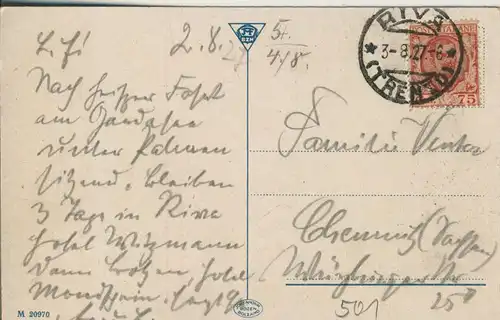 L. Fr.
2.8.27
Nach heißer Fahrt
am Gardasee
unter Palmen
sitzend. Bleiben
3 Tage in Riva
Hotel Witzmann
dann Bozen, Hotel
Mondschein.
M 20970
5t
4/8.
RIVA
3-8.27-6
(TRENTO)
75
Familie
Chemnitz (Sachsen)
25 II
501